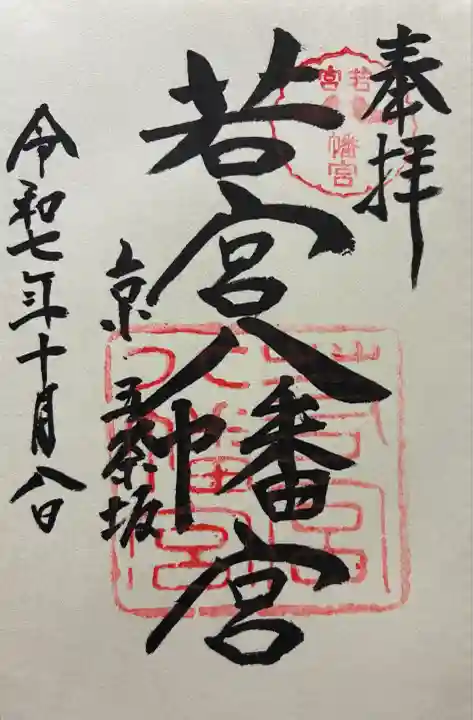 奉拝
若宮八幡宮
京 五条坂
令和七年十月八日
若宮
幡宮
若宮八幡宮